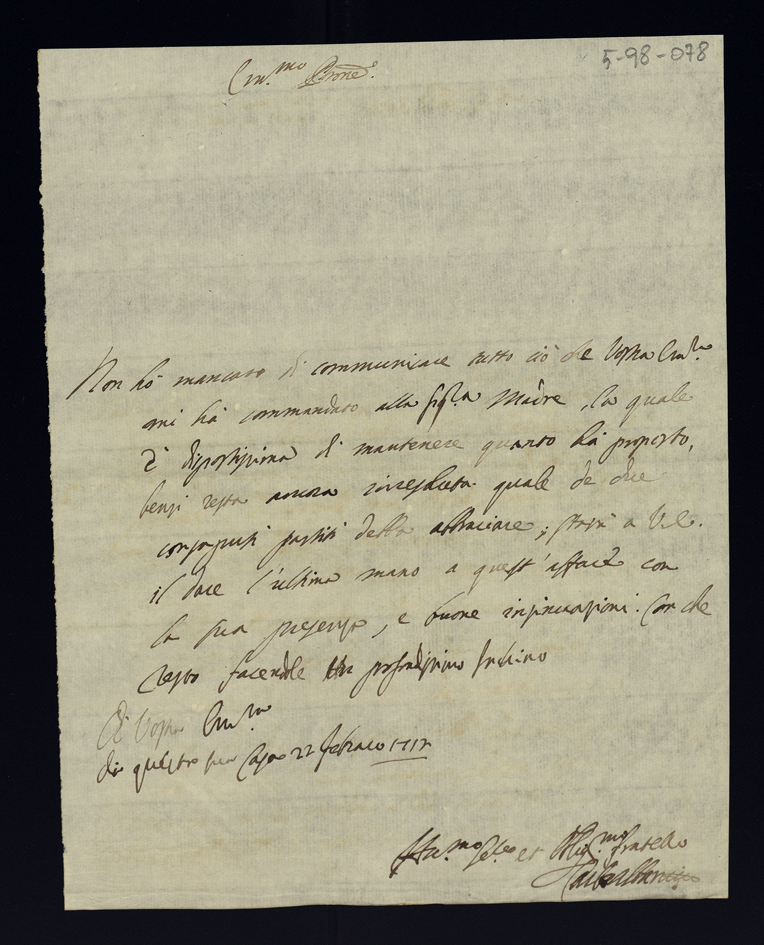 5-98-078
Em.mo Prone.
Non hò mancato di communicare tutto ciò che Vostra Em.za
mi hà commandato alla Sig.ra Madre, la quale
è dispostissima di mantenere quanto hà proposto,
bensì resta ancora irresoluta quale de due
consaputi partiti debba abbraciare; starà a V.E.
il dare l'ultima mano a quest'affare con
la sua presenza, e buone insinuazioni. Con che
resto facendole un profondissimo Inchino
Di Vostra Em.za
di questa sua Casa 22 febraro
Hu.mo et Obblig.mo fratello